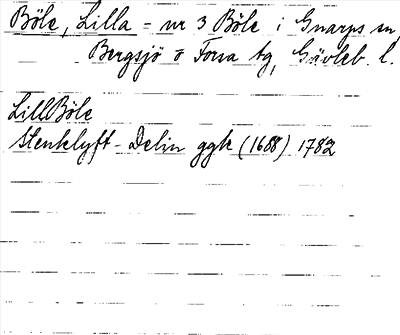 Böle, Lilla = nr 3 Böle i Gnarps sn,
Bergsjö o Forsa tg, Gävleb. l.
LillBöle
Stenklyft-Delin ggk (1688) 1782